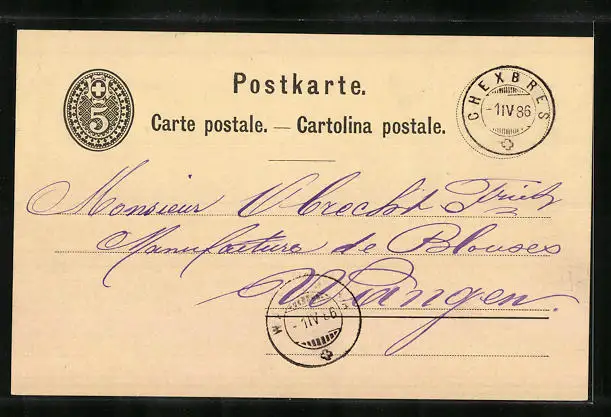 5
Postkarte.
Carte postale. — Cartolina postale.
CHEXBRES
-1 IV 86
Monsieur Obrecht Fritz
Manufacture de Blouses
Wangen.
-1 IV 86